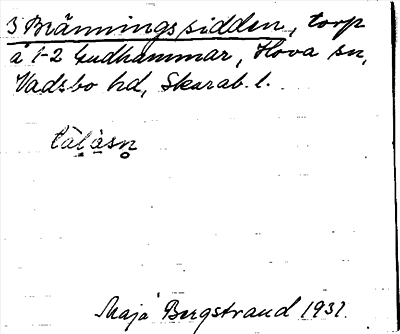 3 Bränningssidden, torp
å 1-2 Gudhammar, Hova sn,
Vadsbo hd, Skarab. l.
Maja Bergstrand 1931.